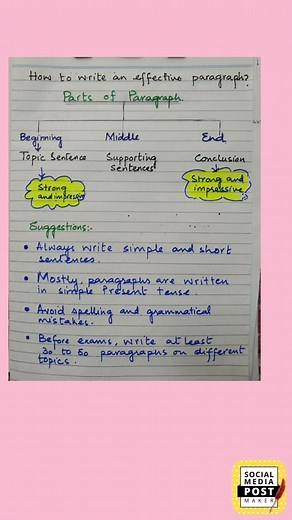 How to write an effective paragraph?
Parts of Paragraph.
Beginning Middle End
Topic Sentence Supporting Sentences Conclusion
Strong and impressive
Strong and impressive
Suggestions:-
Always write simple and short
sentences.
Mostly, paragraphs are written
in simple Present tense.
Avoid spelling and grammatical
mistakes.
Before exams, write at least
30 to 50 paragraphs on different
topics.
SOCIAL
MEDIA
POST
MAKER